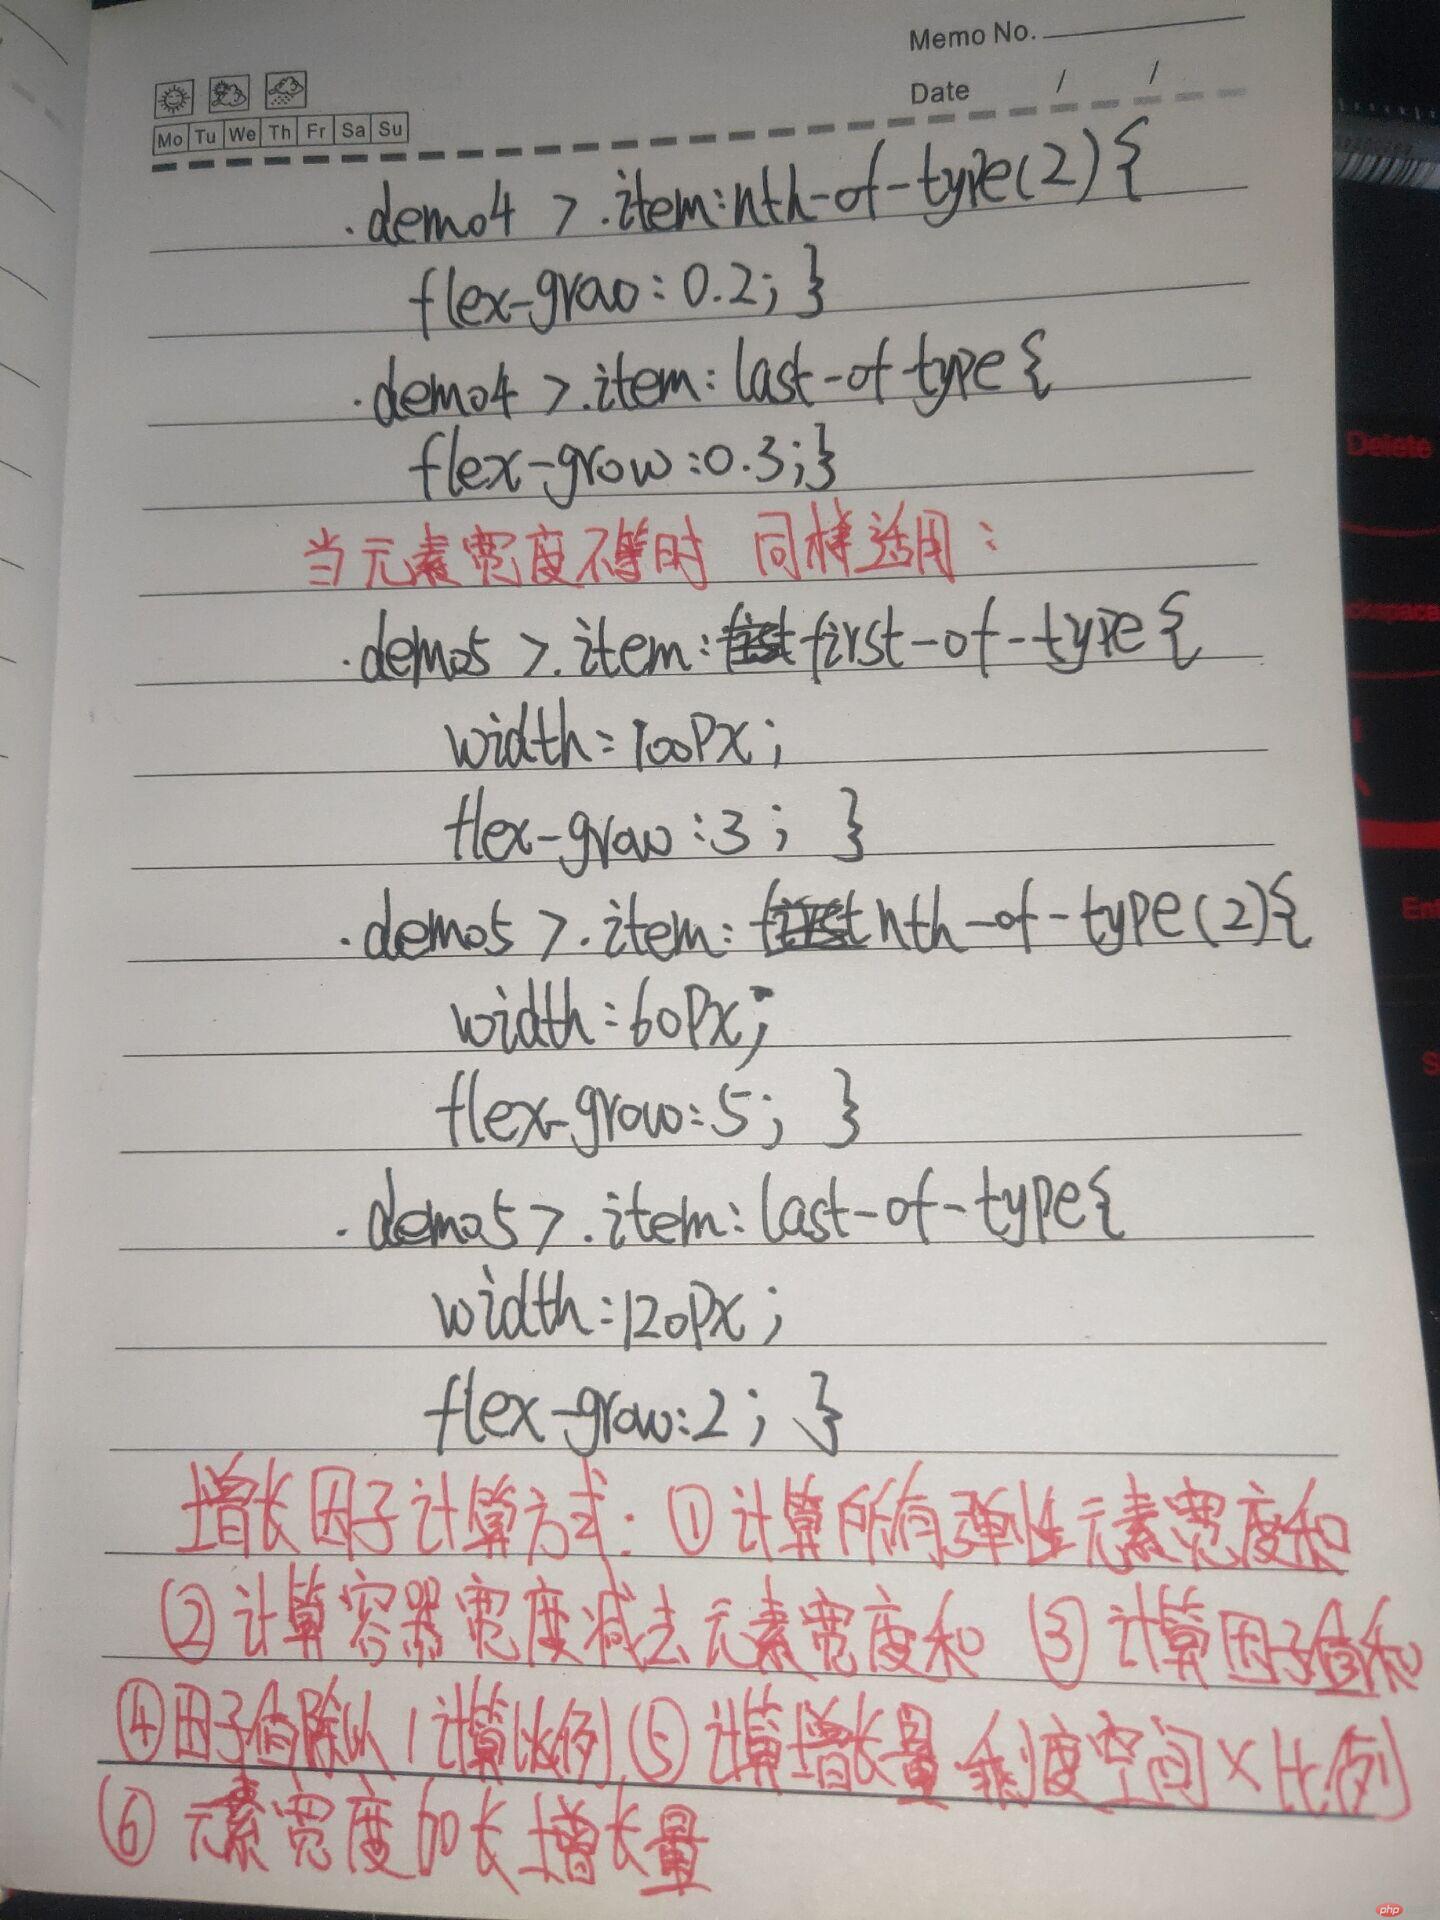 Memo No.
Date / /
Mo Tu We Th Fr Sa Su
.demo4 > .item:nth-of-type(2){
flex-grow:0.2; }
.demo4 > .item:last-of-type{
flex-grow:0.3;}
当元素宽度不等时 同样适用:
.demo5 > .item:first-of-type{
width=100px;
flex-grow:3; }
.demo5 > .item:nth-of-type(2){
width=60px;
flex-grow:5; }
.demo5 > .item:last-of-type{
width:120px;
flex-grow:2; }
增长因子计算方式: ①计算所有弹性元素宽度和
②计算容器宽度减去元素宽度和 ③计算因子值和
④因子值除以1计算比例 ⑤计算增长量 剩度空间×比例
⑥元素宽度加长增长量
Delete
php